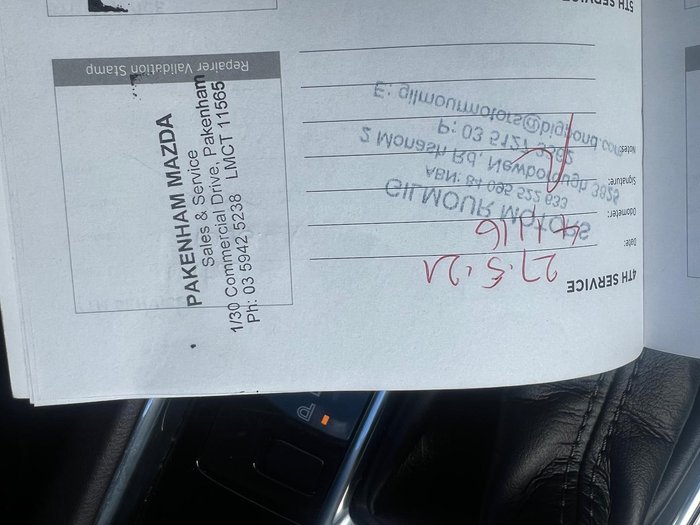 4TH SERVICE
Date: 27.5.21
Odometer:
Signature:
Notes:
GILMOUR MOTORS
ABN: 84 095 522 633
2 Monash Rd, Newborough 3825
P: 03 5127
E: gilmourmotors@bigpond.com
Repairer Validation Stamp
PAKENHAM MAZDA
Sales & Service
1/30 Commercial Drive, Pakenham
Ph: 03 5942 5238 LMCT 11565
5TH SERVICE
P